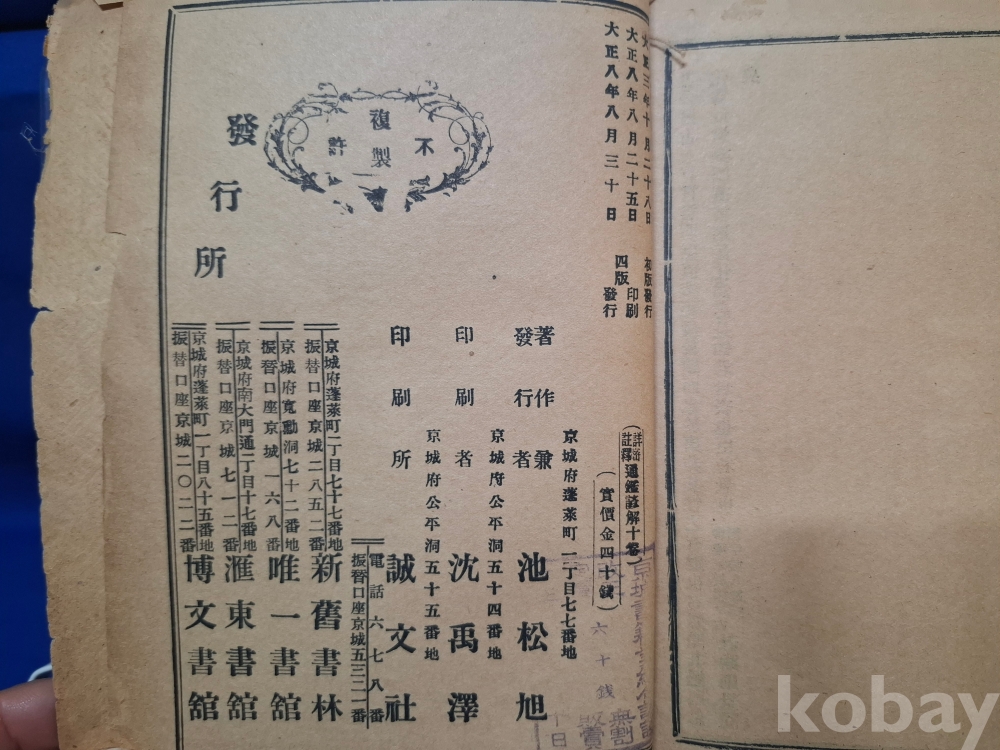 大正三年十月二十八日 初版發行
大正八年八月二十五日 印刷
大正八年八月三十日 四版發行
不許
複製
詳密註釋通鑑諺解十卷
(實價金四十錢)
京城府蓬萊町一丁目七七番地
著作兼發行者 池松旭
京城府公平洞五十四番地
印刷者 沈禹澤
京城府公平洞五十五番地
印刷所 誠文社
電話六七八番
振替口座京城五三二一番
發行所
京城府蓬萊町二丁目七十七番地
振替口座京城二八五二番
新舊書林
京城府寬勳洞七十二番地
振替口座京城一六八番
唯一書館
京城府南大門通二丁目十七番地
振替口座京城七一二番
滙東書館
京城府蓬萊町一丁目八十五番地
振替口座京城二〇二二番
博文書館
六十錢
無割
kobay